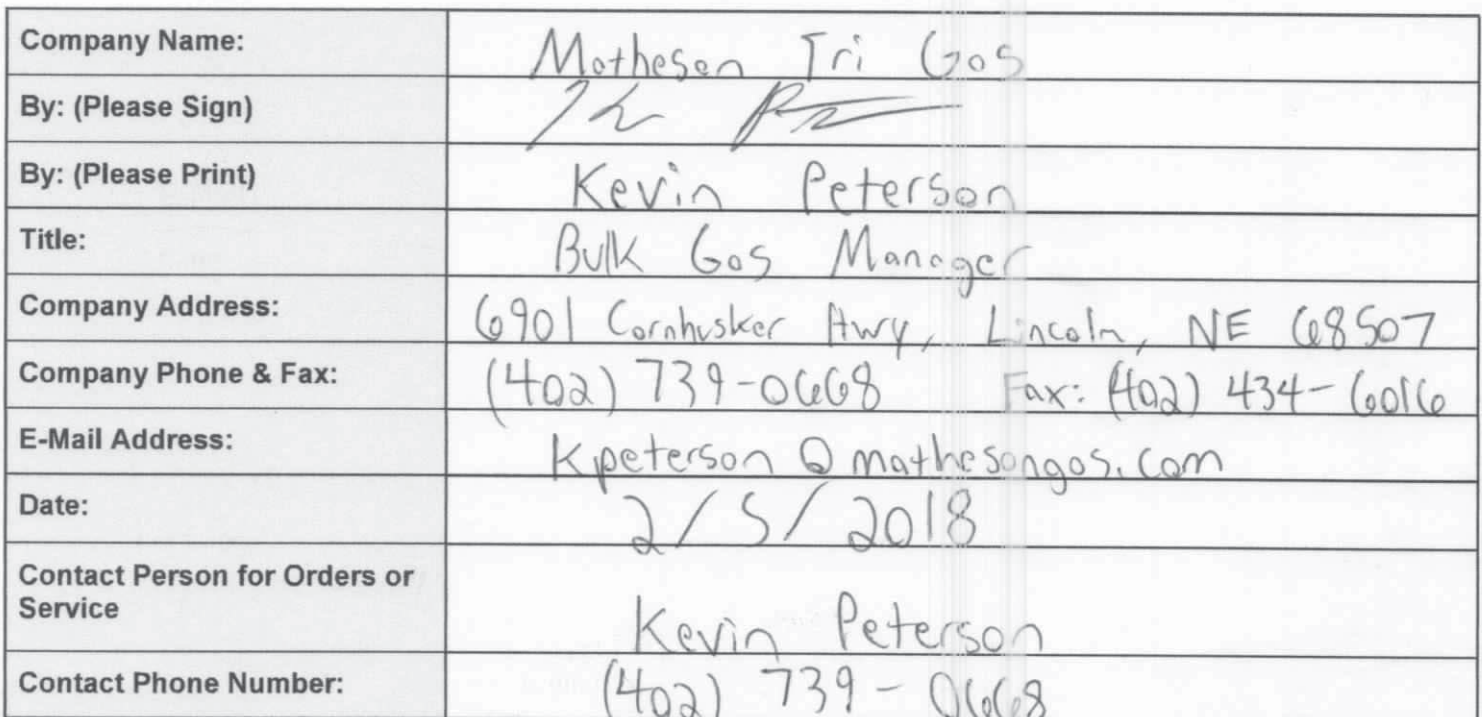 Company Name: Matheson Tri Gas
By: (Please Sign)
By: (Please Print) Kevin Peterson
Title: Bulk Gas Manager
Company Address: 6901 Cornhusker Hwy, Lincoln, NE 68507
Company Phone & Fax: (402) 739-0668 Fax: (402) 434-6016
E-Mail Address: Kpeterson @ mathesongas.com
Date: 2/5/2018
Contact Person for Orders or
Service Kevin Peterson
Contact Phone Number: (402) 739-0668